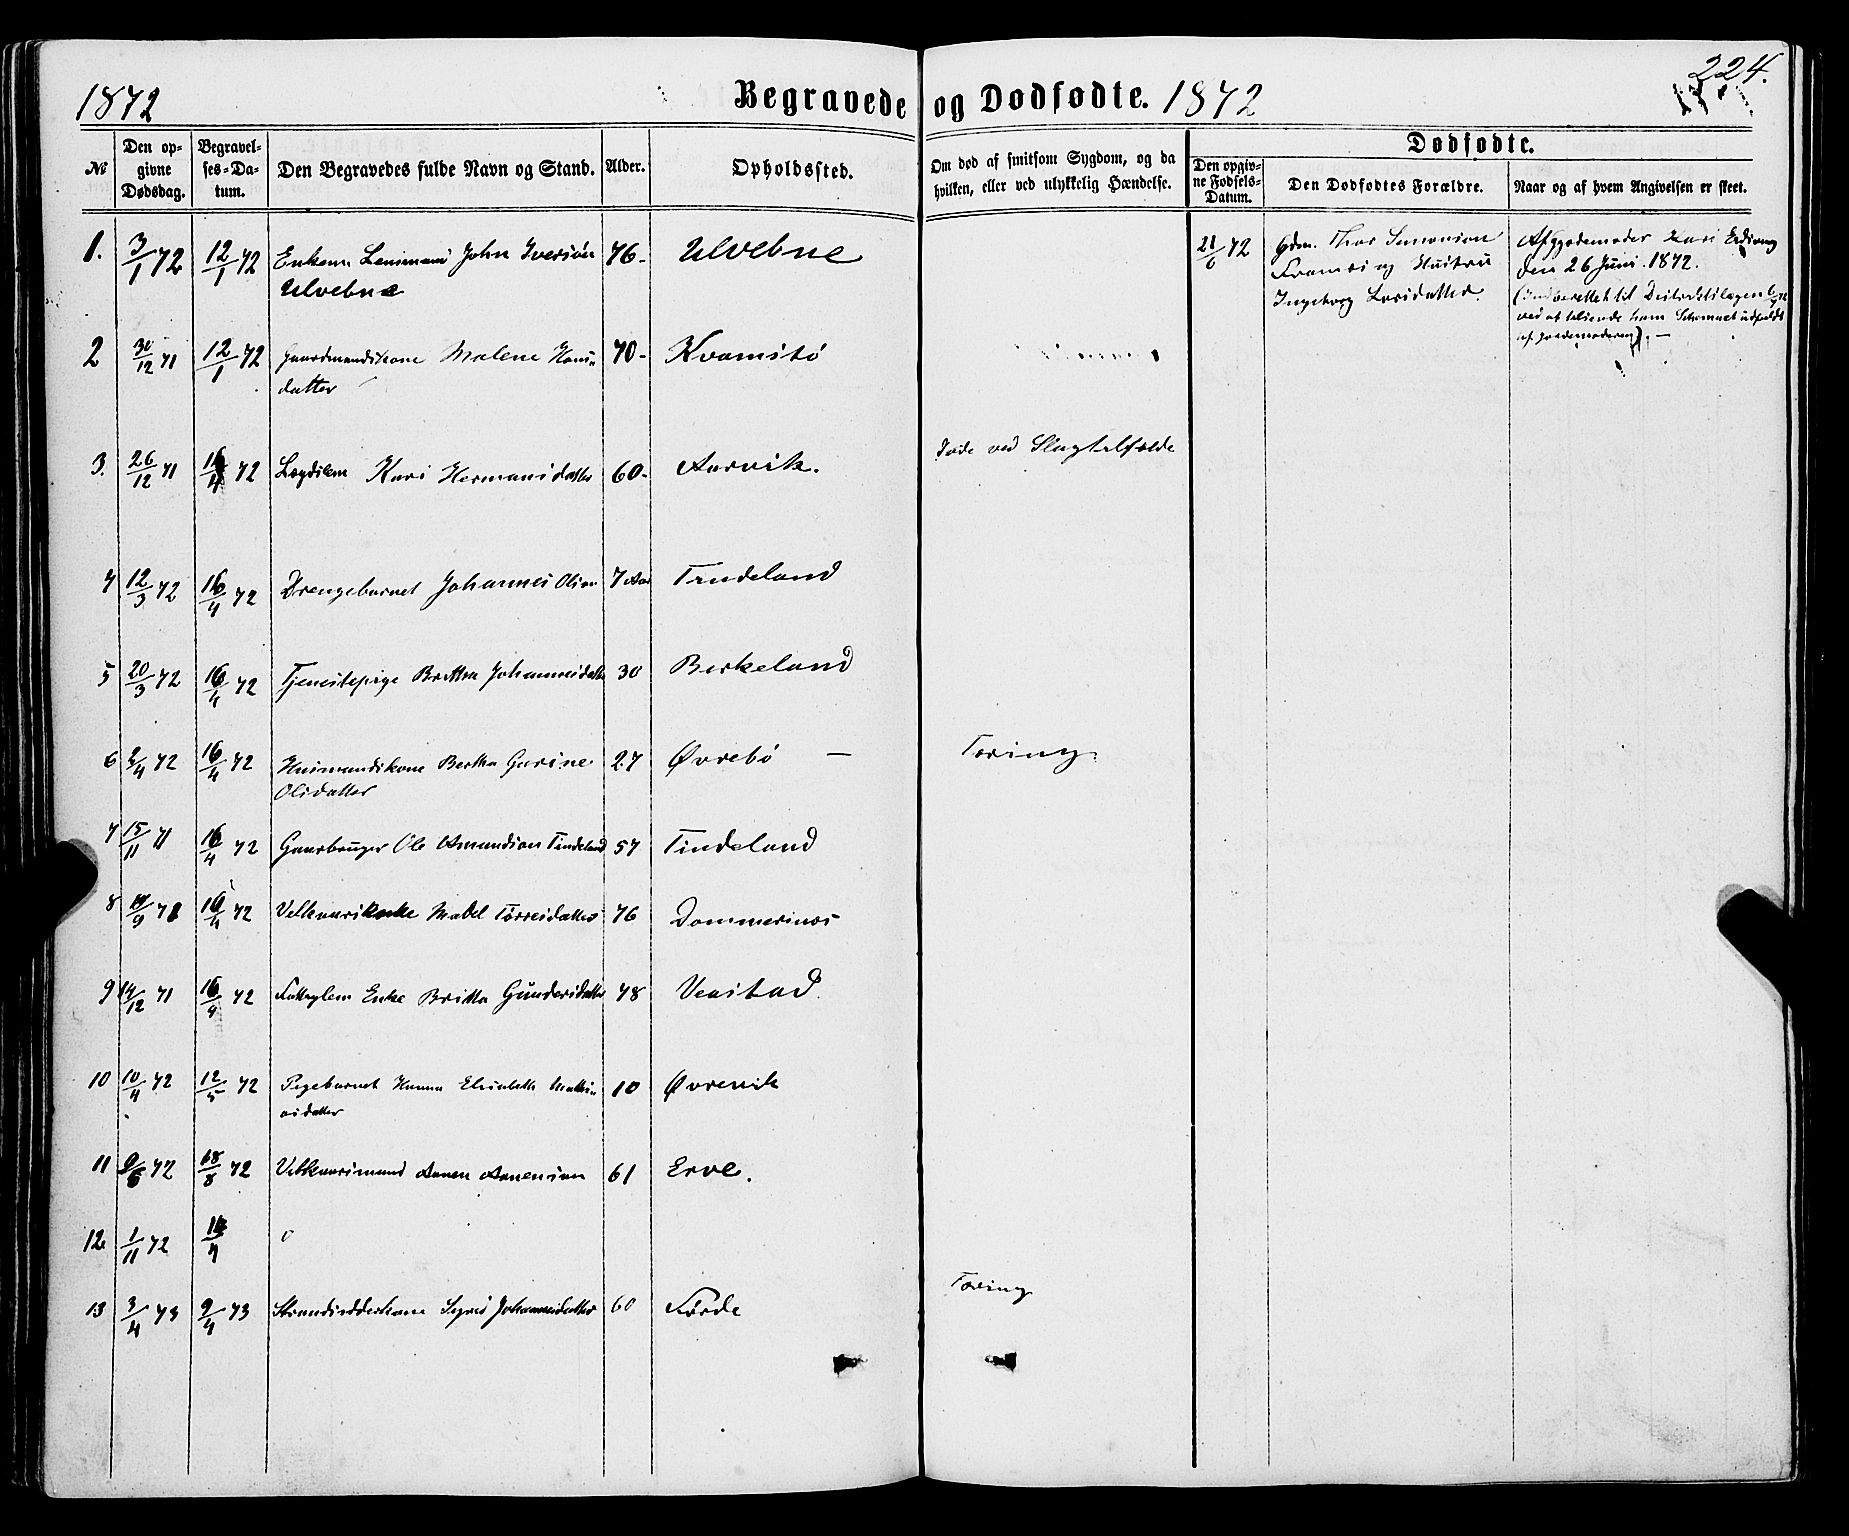 1872
Begravede og Dødfødte. 1872
224.
№
Den opgivne Dødsdag.
Begravelses-Datum.
Den Begravedes fulde Navn og Stand.
Alder.
Opholdssted.
Om død af smitsom Sygdom, og da hvilken, eller ved ulykkelig Hændelse.
Dødfødte.
Den opgivne Fødsels-Datum.
Den Dødfødtes Forældre.
Naar og af hvem Angivelsen er skeet.
1. 3/1 72 12/1 72 Enkem Lensmand John Iversön 76- Ulvebne
Ulvebne
21/6 72 Gdm. Thor Simonsen
og Hustru
Ingeborg Larsdatter.
Af Gjordemoder Kari
den 26 Juni 1872.
2 30/12 71 12/1 72 Gaardmandskone Malene Hans- 70- Kvamsö
datter
3. 26/12 71 16/4 72 Lægdslem Kari Hermansdatter 60- Aarvik. Døde ved Slagtilfælde
4 12/3 72 16/4 72 Drengebarnet Johannes Olsen 7 Aar
5 20/3 72 16/4 72 Tjenestepige Brittha Johannesdatter 30 Berkeland
6 2/4 72 16/4 72 Husmandskone Bertha Gurine 27 Øvrebö — Tæring
Olsdatter
7 15/11 71 16/4 72 Gaardbruger Ole Amundsen Tindeland 57 Tindeland
8 16/4 72 Mabel Tørresdatter 76 Dommersnæs
9 14/12 71 16/4 72 Enke Britha Gundersdatter 78 Veastad
10 10/4 72 12/5 72 Pigebarnet Hanna Elisabeth Mathi- 10 Øvrevik
asdatter
11 72 18/8 72 Aanen Aanensen 61 Erve.
12 1/11 72
13 3/4 73 9/4 73 Strandsidderkone Johannesdatter 60 Førde Tæring